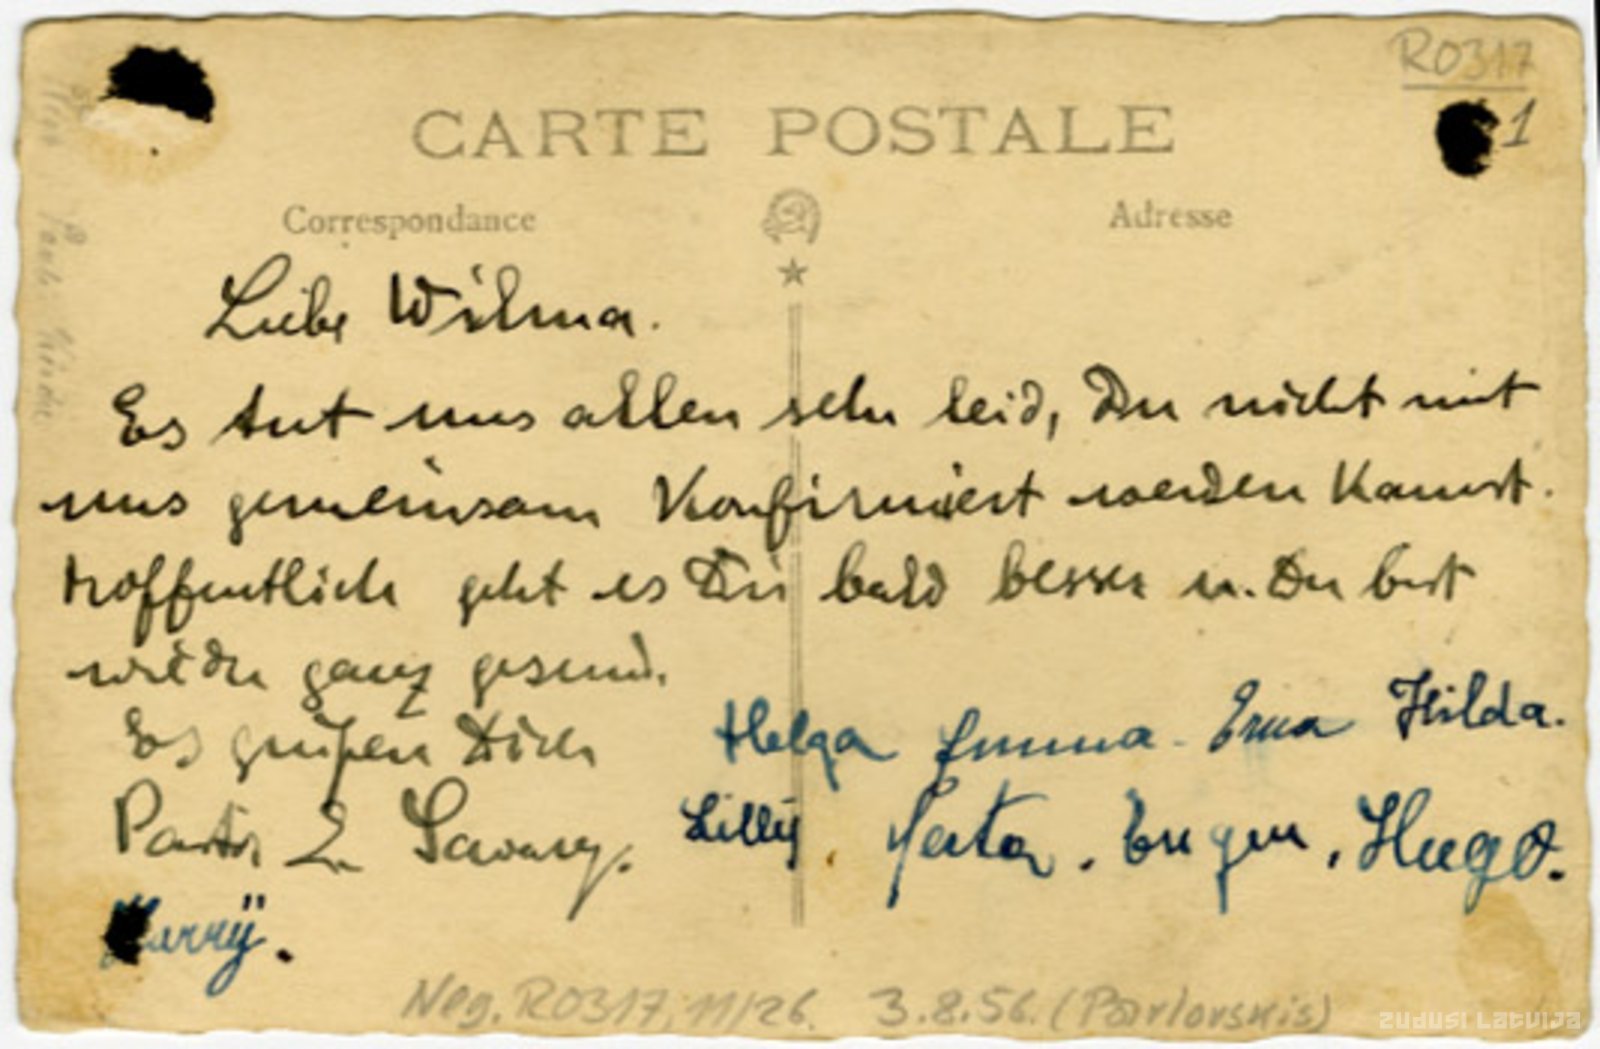 R0317
1
CARTE POSTALE
Correspondance
Adresse
Liebe Wilma.
Es tut uns allen sehr leid, Du nicht mit
uns gemeinsam Konfirmiert werden kannst.
Hoffentlich geht es Dir bald besser u. Du bist
wieder ganz gesund.
Es grüßen Dich
Helga Emma. Erna Hilda.
Pastor
Lilly. Herta. Eugen, Hugo.
Harrÿ.
Neg. R0317, 11/26. 3.8.56. (Pavlovskis)
ZUDUSI LATVIJA